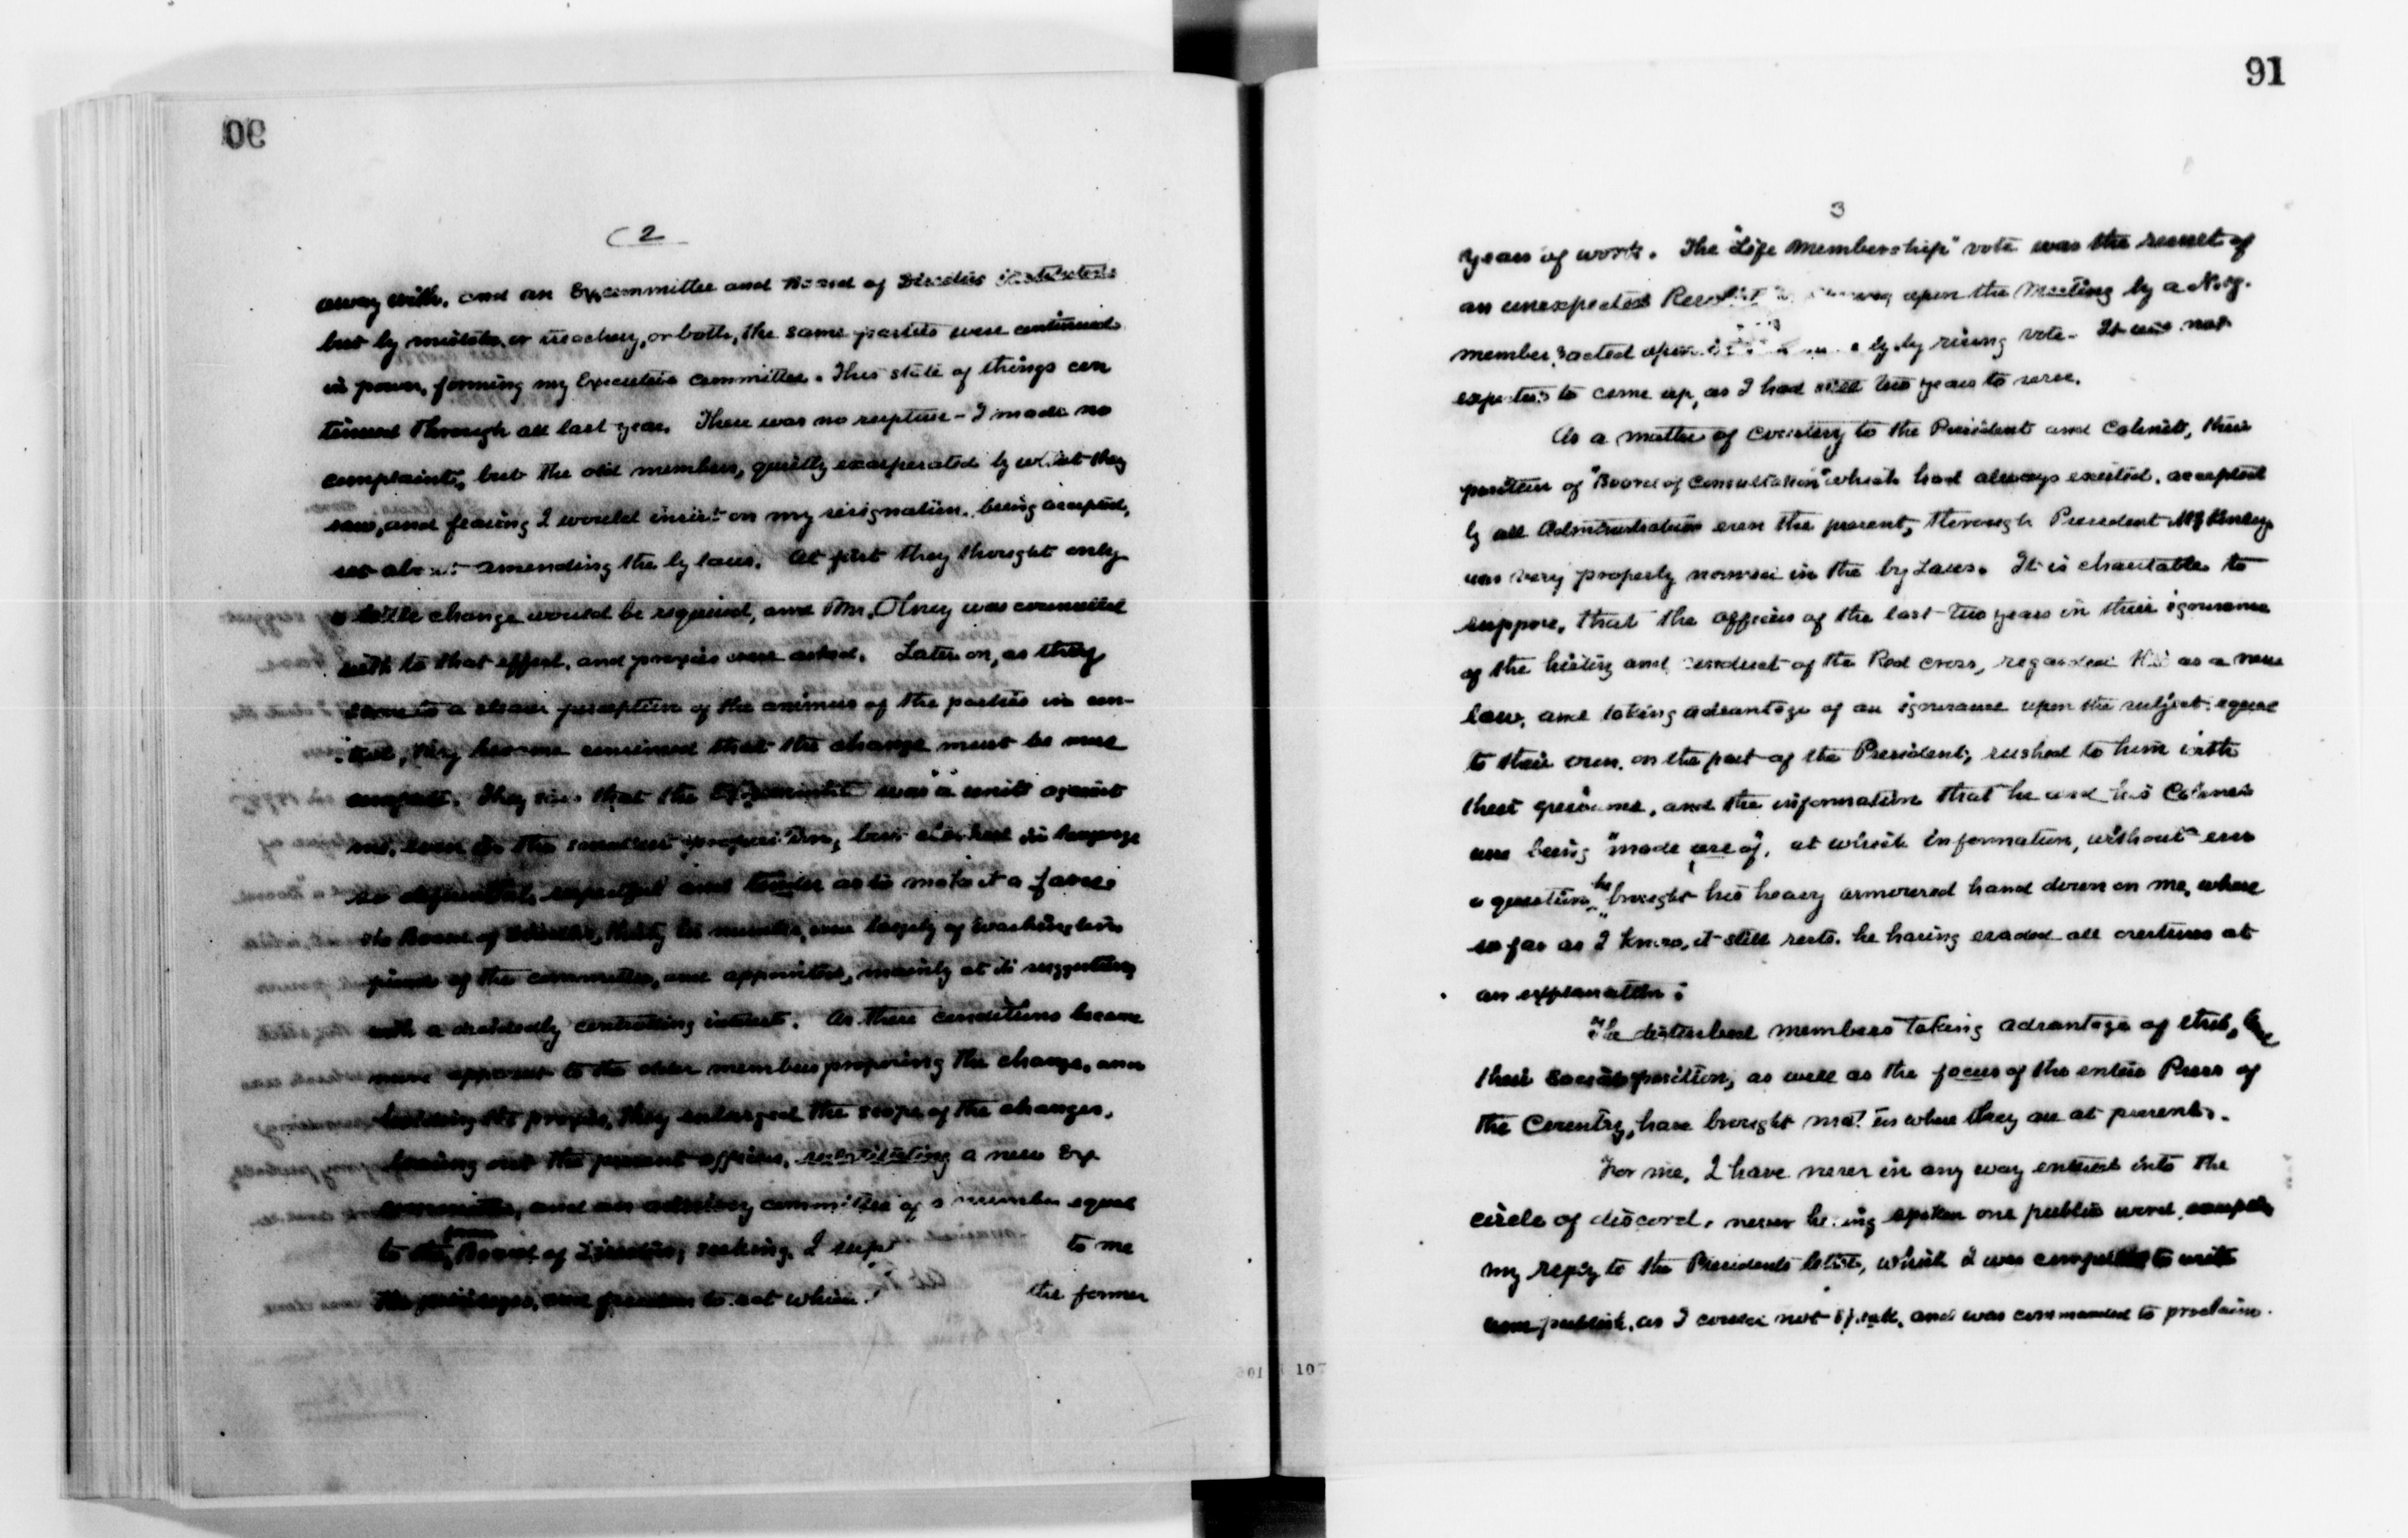 90
2
away with, and an Ex committee and Board of Directors
but by mistake, or treachery, or both, the same parties were continued
in power, forming my Executive Committee. This state of things con
tinued through all last year. There was no rupture - I made no
complaints, but the old members, quietly exasperated by what they
saw, and fearing I would insist on my resignation being accepted,
set about amending the by laws. At first they thought only
a little change would be required, and Mr. Olney was
with to that effect, and proxies were asked. Later on, as they
came to a clearer perception of the animus of the parties in con-
trol, they became convinced that the change must be more
They saw that the was a unit against
me, even in the smallest proposition, but in language
so deferential, respectful and tender as to make it a favor
The Board of Directors, thirty in number, was largely of Washington
friends of the committee, and appointed, mainly at its suggestion
with a decidedly controlling interest. As these conditions became
more apparent to the older members proposing the change, and
holding the proxies, they enlarged the scope of the changes,
leaving out the present officers, substituting a new Ex
committee, and an advisory committee of a number equal
to the former Board of Directors, seeking, I to me
the privileges, and freedom to act which the former
106
91
3
years of work. The "Life Membership" vote was the result of
an unexpected upon the Meeting by a N.Y.
member, acted upon by rising vote. It was not
expected to come up, as I had still two years to serve.
As a matter of courtesy to the President and Cabinet, their
position of "Board of Consultation" which had always existed, accepted
by all Administrations even the present, through President McKinley
was very properly named in the by Laws. It is charitable to
suppose, that the officers of the last two years in their ignorance
of the history and conduct of the Red Cross, regarded this as a new
law, and taking advantage of an ignorance upon the subject equal
to their own, on the part of the President, rushed to him with
their grievance, and the information that he and his Cabinet
were being "made use of", at which information, without even
a question, he brought his heavy armoured hand down on me, where
so far as I know, it still rests, he having evaded all overtures at
an explanation.
The disturbed members taking advantage of this, and
their social position, as well as the focus of the entire Press of
the Country, have brought matters where they are at present.
For me, I have never in any way entered into the
circle of discord, never having spoken one public word, except
my reply to the Presidents letter, which I was compelled to write
and publish, as I could not speak, and was commanded to proclaim.
107